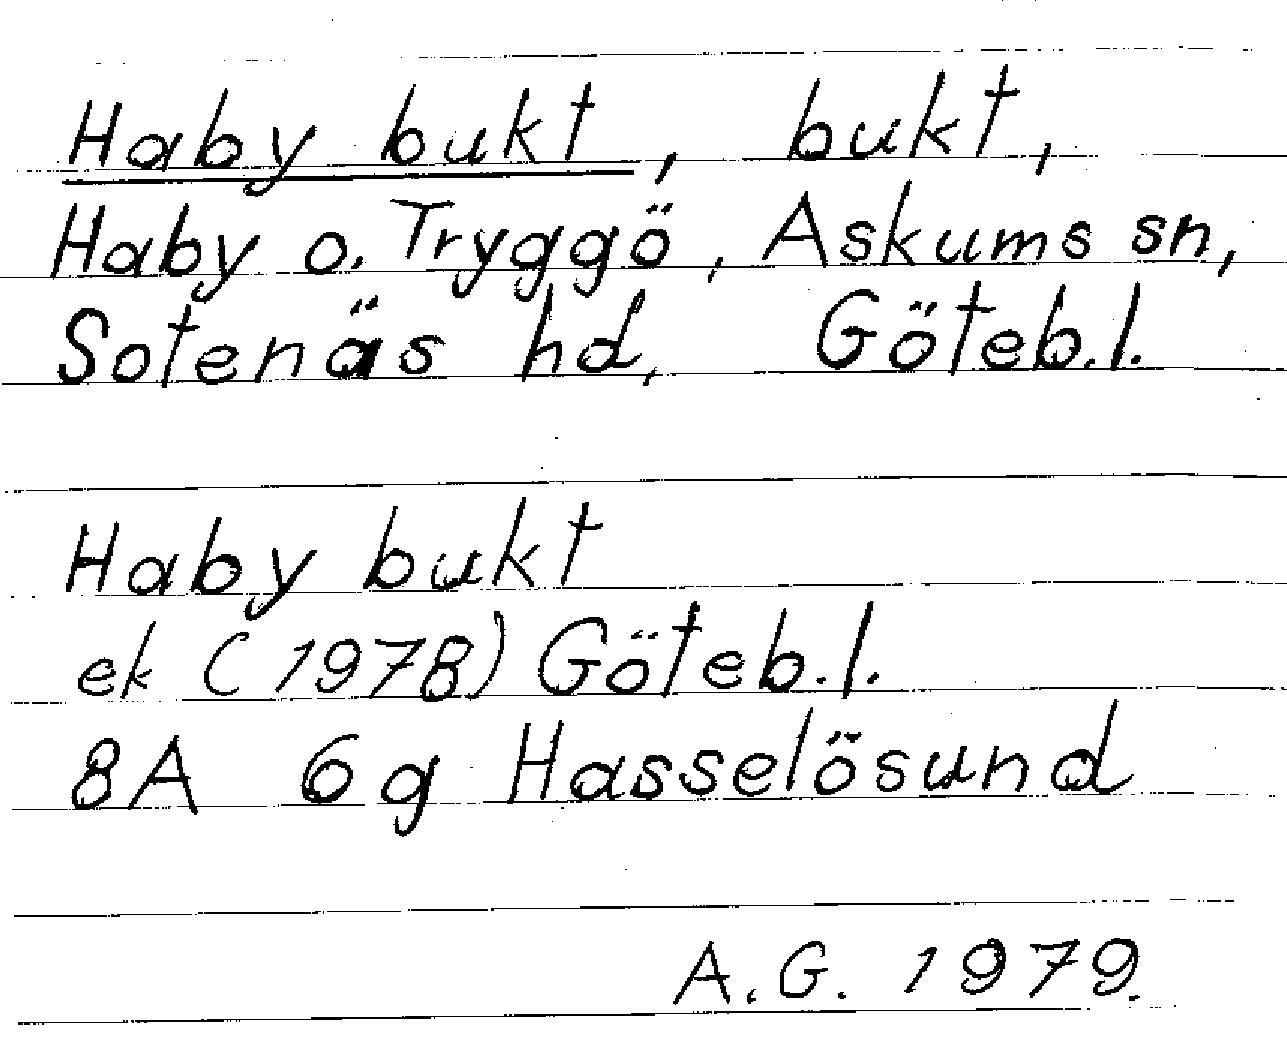 Haby bukt, bukt,
Haby o. Tryggö, Askums sn,
Sotenäs hd, Göteb.l.
Haby bukt
ek (1978) Göteb.l.
8A 6g Hasselösund
A.G. 1979.